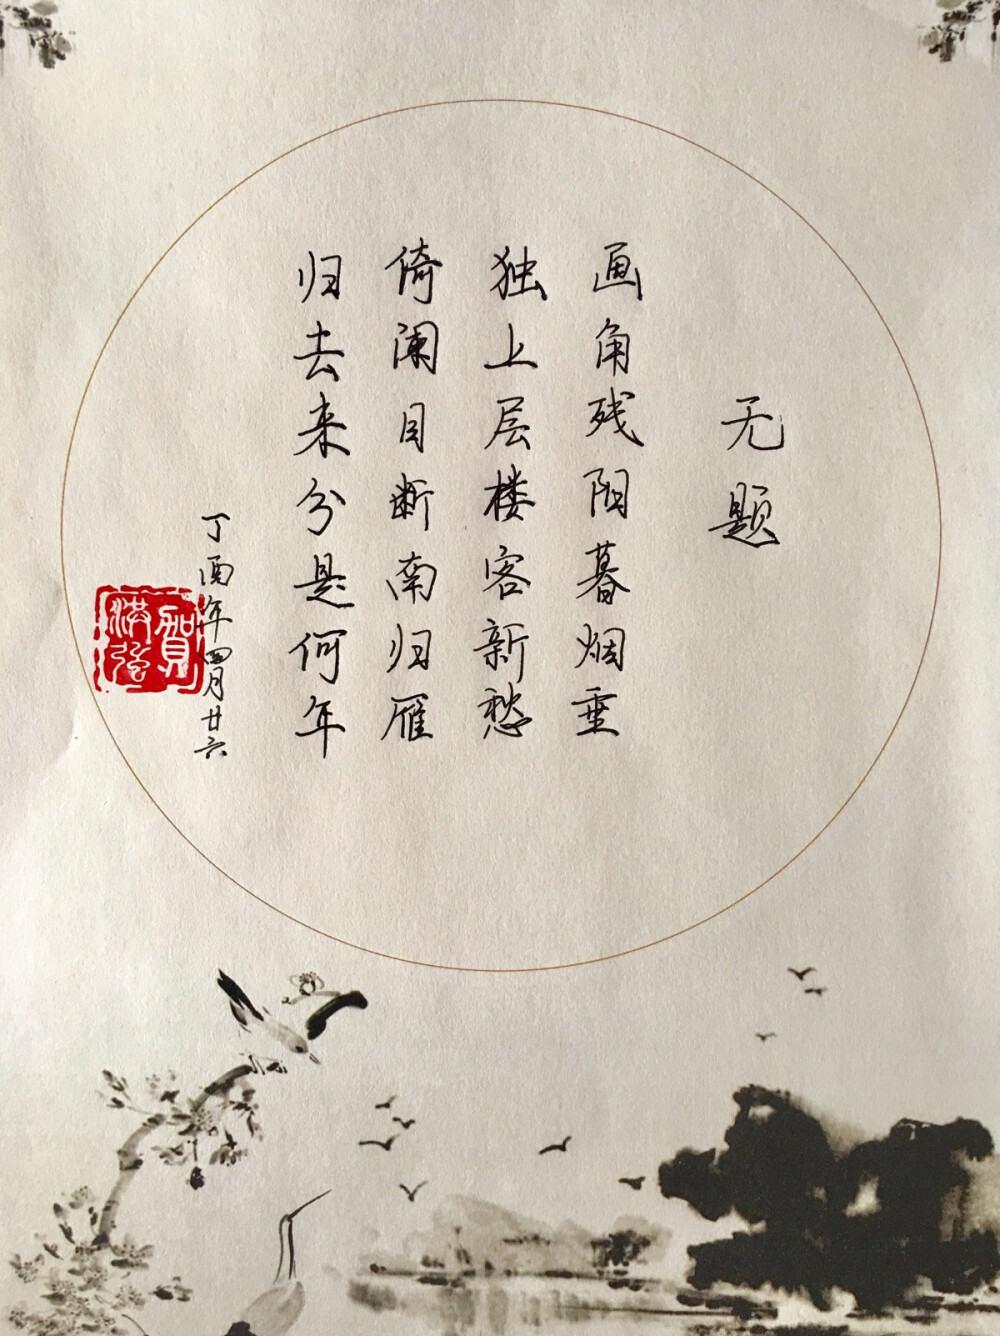 无题
画角残阳暮烟重
独上层楼客新愁
倚阑目断南归雁
归去来兮是何年
丁酉年四月廿六
賀洪強